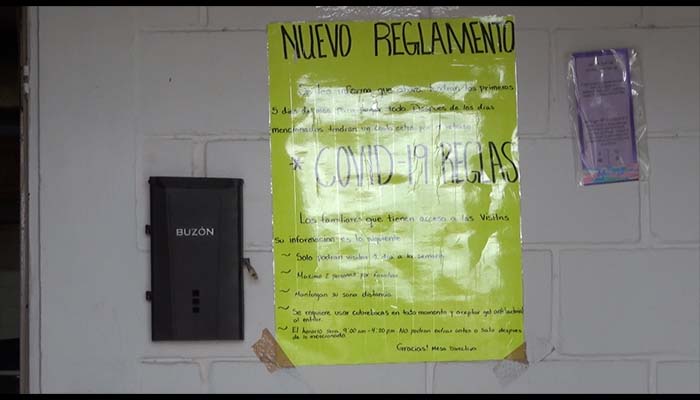 NUEVO REGLAMENTO
Se les informa que ahora tendran los primeros
5 dias del mes para pagar todo. Despues de los dias
mencionados tendran un costo extra por el
* COVID-19 REGLAS
Los familiares que tienen acceso a las visitas
su informacion es lo siguiente
~ Solo podran visitar 1 dia a la semana
~ Maximo 2 personas por familia
~ Mantengan su sana distancia
~ Se requiere usar cubrebocas en todo momento y aceptar gel antibacterial
al entrar.
~ El horario sera 9:00 am - 4:00 pm. No podran entrar antes o salir despues
de lo mencionado.
Gracias! Mesa Directiva
BUZÓN